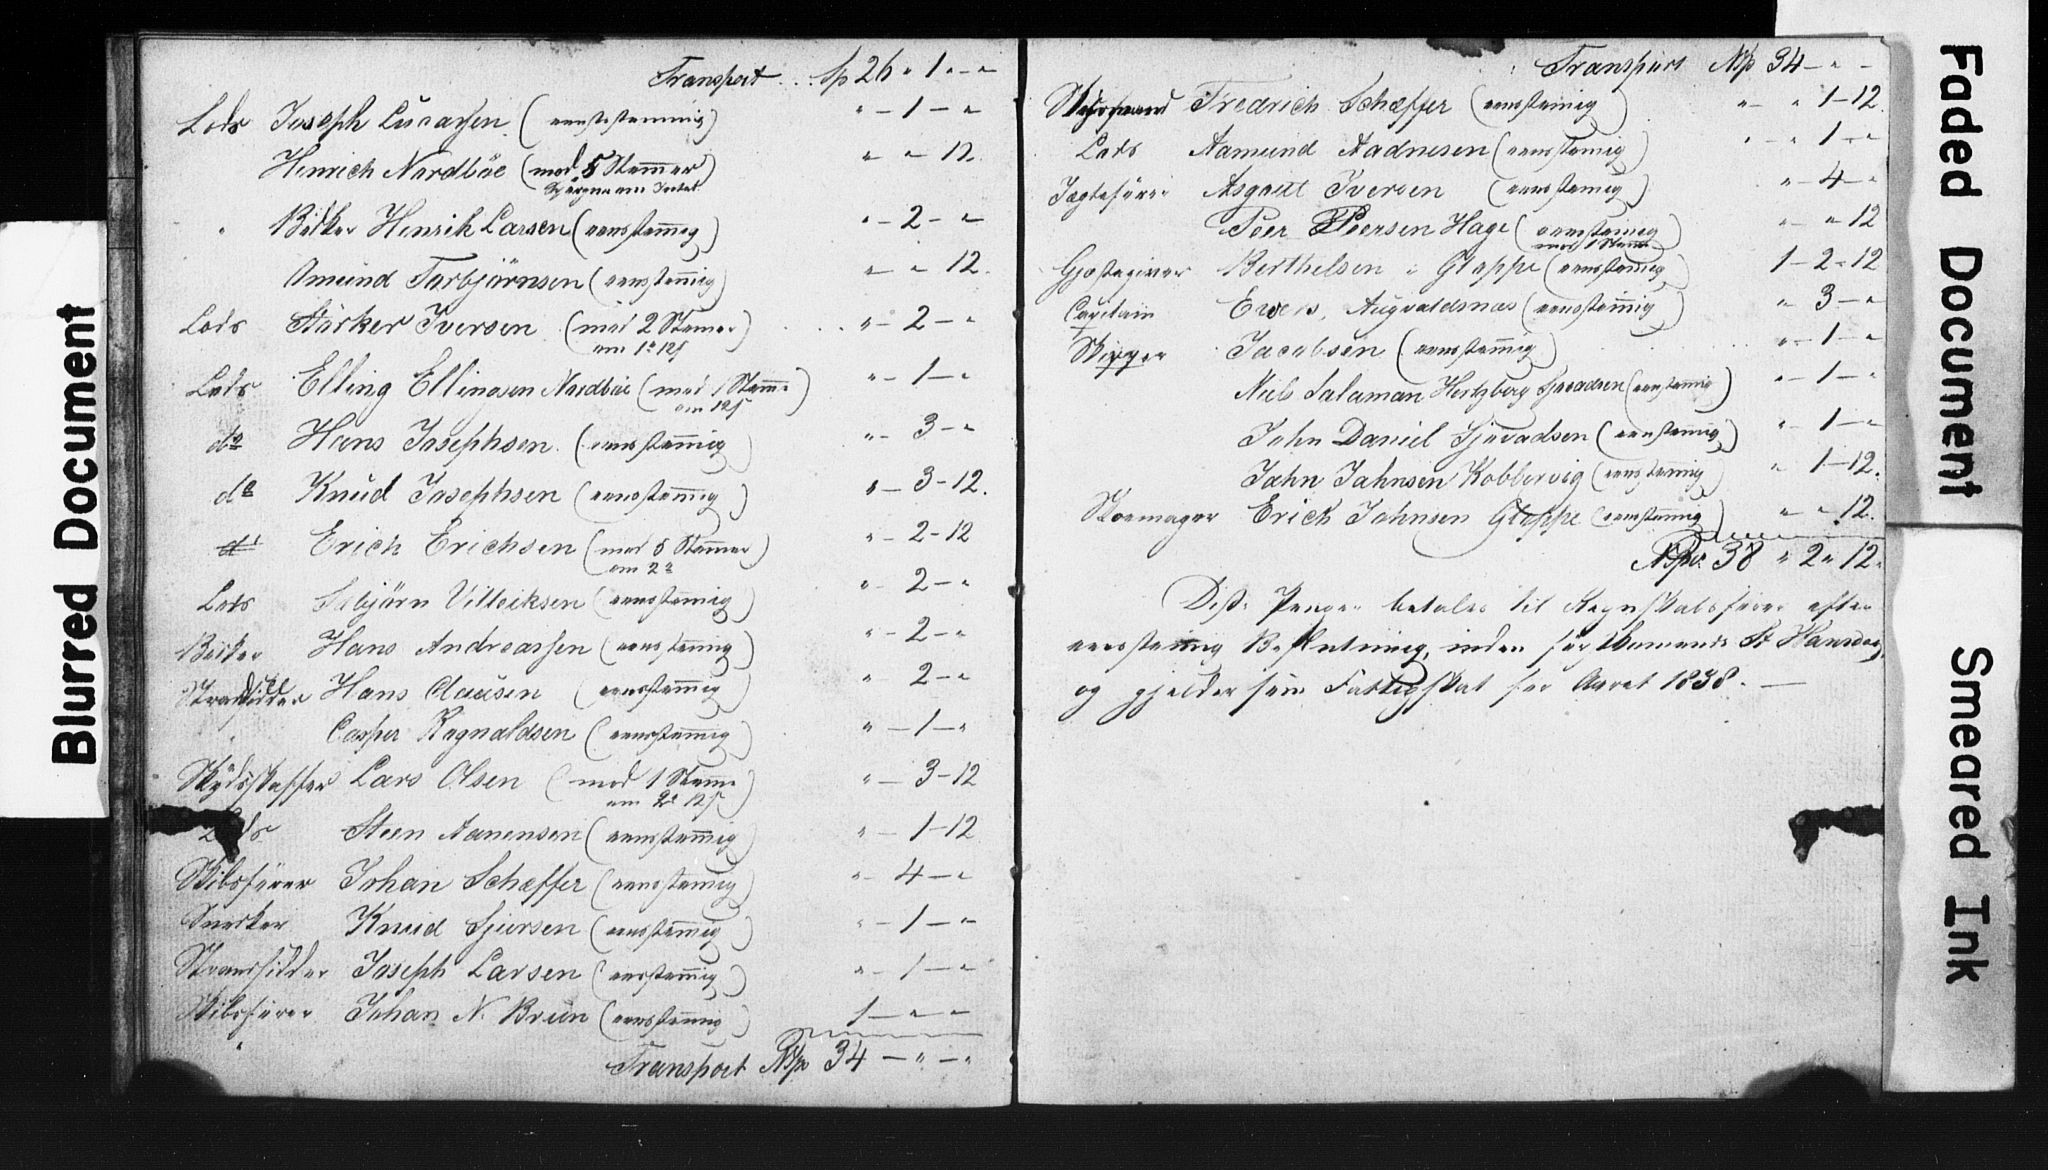 Blurred Document
Transport .. Sp 26 " 1 " – "
Lods Joseph Lucassen (eenstemmig) " – 1 – "
Henrich Nordböe (mod 5 Stemmer " – " – 12
" Bödker Henrik Larsen (eenstemmig) " – 2 – "
Amund Torbjörnsen (eenstemig) " – " 12.
Lods Stærker Iversen (mod 2 Stemer) " – 2 – "
om 1 ort 12 s
Lods Elling Ellingsen Nordböe (mod 1 Stemme) " – 1 – "
om 12 s
do Hans Josephsen (eenstemmig) " – 3 – "
do Knud Josephsen (eenstemmig) " – 3 – 12.
Erich Erichsen (mod 5 Stemmer) " – 2 – 12
om 2
Lods Asbjörn Villeiksen (eenstemig) " – 2 – "
Hans Andreassen (eenstemig) " – 2 – "
Strandsidder Hans Clausen (eenstemmig) " 2 – "
Casper Regnaldsen (eenstemmig) " – 1 – "
Skydsskaffer Lars Olsen (mod 1 Stemme) " – 3 – 12
om 2 12 s
Lods Steen Aanensen (eenstemmig) " – 1 – 12
Skibsfører Johan Schæffer (eenstemmig) " – 4 – "
Snedker Knud Sjursen (eenstemmig) " – 1 – "
Strandsidder Joseph Larsen (eenstemmig) " – 1 – "
Skibsfører Johan N. Bruun (eenstemmig) 1 – " – "
Transport Nsp 34 – " – "
Transport Nsp 34 – " –
Fredrich Schæffer (eenstemig) " – " 1 – 12
Lods Aamund Aadnesen (eenstemig) " – " 1 – "
Jagtefører Asgout Iversen (eenstemig) " – 4 – "
Peer Peersen Hage (eenstemmig) " – " 12
mod 1 Stemme
Gjestegiver Berthelsen i Gloppe (eenstemig) 1 – 2 " 12
Capitain Ewers, Augvaldsnæs (eenstemmig) " 3 – "
Skipper Jacobsen (eenstemmig) " – 1 – "
Niels Salaman Hertzberg Sjovadsen (eenstemig) " – 1 – "
John Daniel Sjovadsen (eenstemmig) " – 1 – "
John Johnsen Kobbervig (eenstemmig) " 1 – 12.
Skoemager Erich Johnsen Gloppe (eenstemmig) " " 12.
Nspd. 38 " 2 " 12.
Disse Penge betales til Regnskabsfører efter
eenstemmig Beslutning, inden førstkomende St Hansdag,
og gjelder som Fattigskat for Aaret 1838. –
Faded Document
Smeared Ink